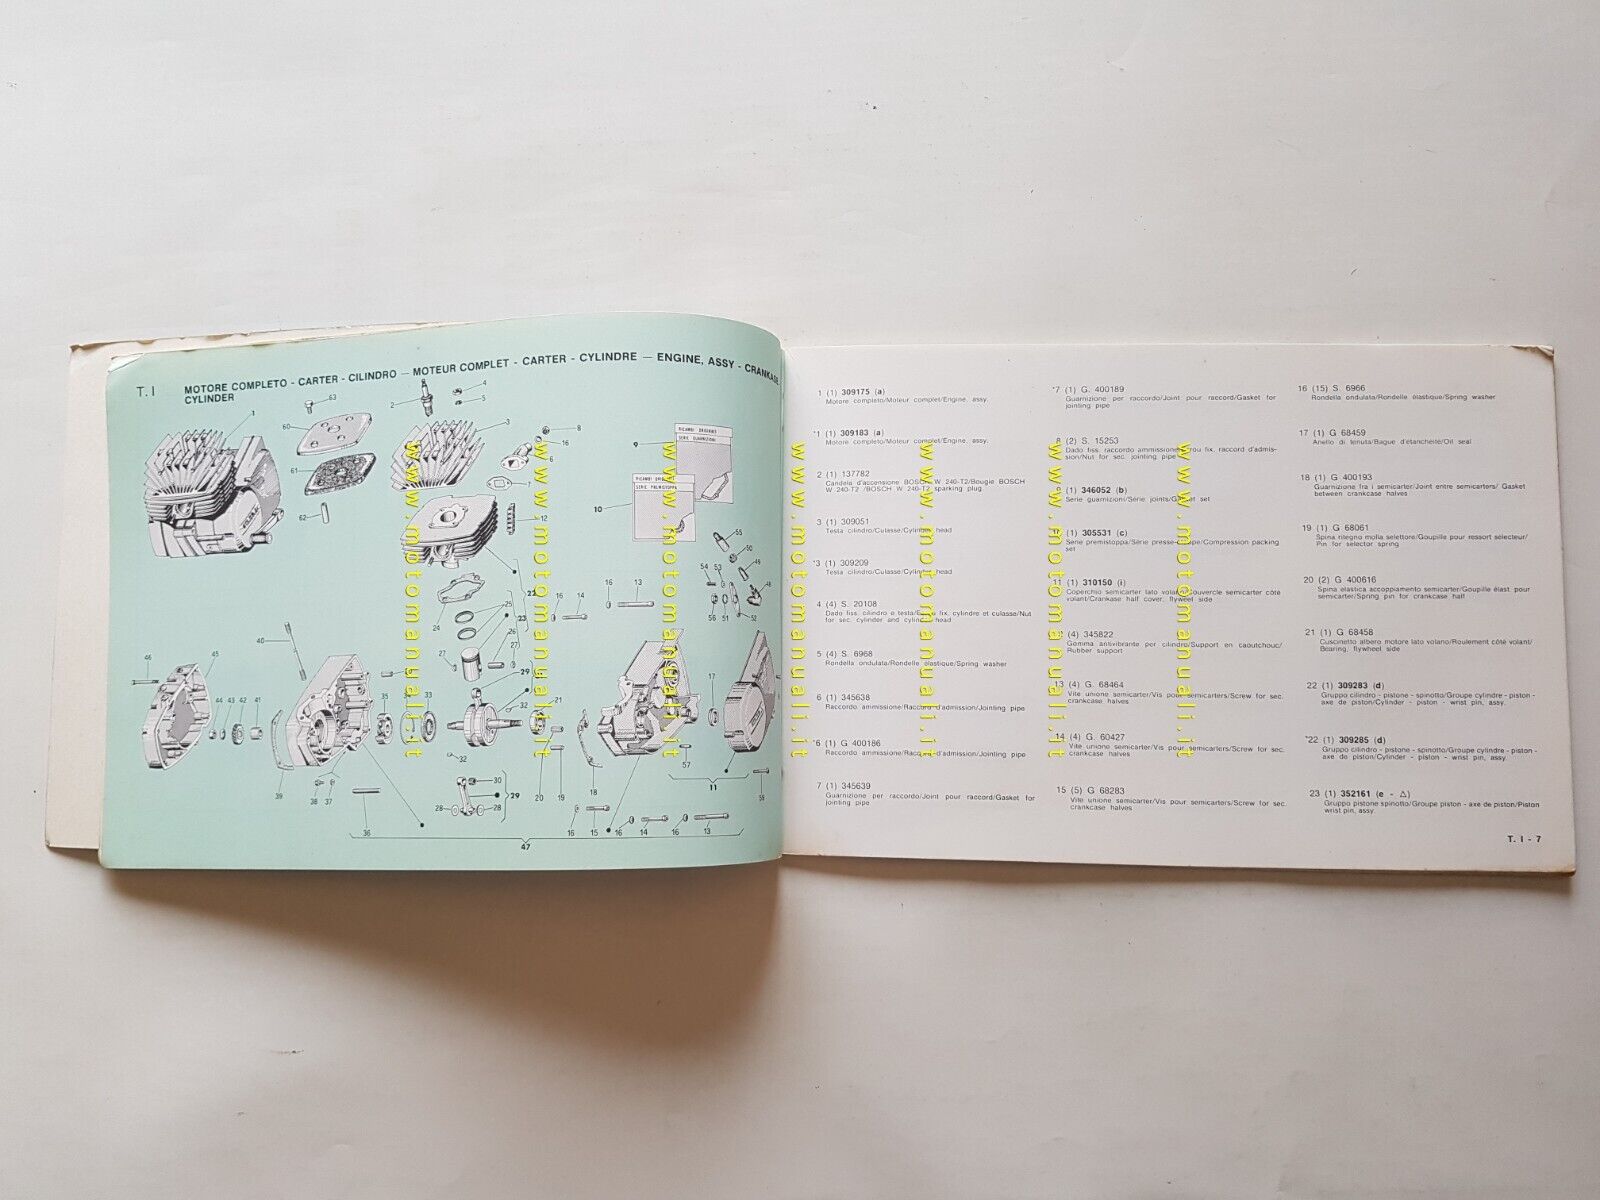 T. I
MOTORE COMPLETO - CARTER - CILINDRO — MOTEUR COMPLET - CARTER - CYLINDRE — ENGINE, ASSY - CRANKASE
CYLINDER
RICAMBI ORIGINALI
SERIE GUARNIZIONI
SERIE PALMISTOPPA
1 (1) 309175 (a)
Motore completo/Moteur complet/Engine, assy.
*1 (1) 309183 (a)
Motore completo/Moteur complet/Engine, assy.
2 (1) 137782
Candela d'accensione BOSCH W 240-T2/Bougie BOSCH
W 240-T2 /BOSCH W 240-T2 sparking plug.
3 (1) 309051
Testa cilindro/Culasse/Cylinder head
*3 (1) 309209
Testa cilindro/Culasse/Cylinder head
4 (4) S. 20108
Dado fiss. cilindro e testa/Ecrou fix. cylindre et culasse/Nut
for sec. cylinder and cylinder head
5 (4) S. 6968
Rondella ondulata/Rondelle élastique/Spring washer
6 (1) 345638
Raccordo ammissione/Raccord d'admission/Jointing pipe
*6 (1) G 400186
Raccordo ammissione/Raccord d'admission/Jointing pipe
7 (1) 345639
Guarnizione per raccordo/Joint pour raccord/Gasket for
jointing pipe
*7 (1) G. 400189
Guarnizione per raccordo/Joint pour raccord/Gasket for
jointing pipe
8 (2) S. 15253
Dado fiss. raccordo ammissione/Ecrou fix. raccord d'admis-
sion/Nut for sec. jointing pipe
9 (1) 346052 (b)
Serie guarnizioni/Série joints/Gasket set
10 (1) 305531 (c)
Serie premistoppa/Série presse-étoupe/Compression packing
set
11 (1) 310150 (i)
Coperchio semicarter lato volano/Couvercle semicarter côté
volant/Crankase half cover, flywheel side
12 (4) 345822
Gomma antivibrante per cilindro/Support en caoutchouc/
Rubber support
13 (4) G. 68464
Vite unione semicarter/Vis pour semicarters/Screw for sec.
crankcase halves
14 (4) G. 60427
Vite unione semicarter/Vis pour semicarters/Screw for sec.
crankcase halves
15 (5) G 68283
Vite unione semicarter/Vis pour semicarters/Screw for sec.
crankcase halves
16 (15) S. 6966
Rondella ondulata/Rondelle élastique/Spring washer
17 (1) G 68459
Anello di tenuta/Bague d'étanchéité/Oil seal
18 (1) G 400193
Guarnizione fra i semicarter/Joint entre semicarters/ Gasket
between crankcase halves
19 (1) G 68061
Spina ritegno molla selettore/Goupille pour ressort sélecteur/
Pin for selector spring
20 (2) G 400616
Spina elastica accoppiamento semicarter/Goupille élast. pour
semicarter/Spring pin for crankcase half
21 (1) G 68458
Cuscinetto albero motore lato volano/Roulement côté volant/
Bearing, flywheel side
22 (1) 309283 (d)
Gruppo cilindro - pistone - spinotto/Groupe cylindre - piston -
axe de piston/Cylinder - piston - wrist pin, assy.
*22 (1) 309285 (d)
Gruppo cilindro - pistone - spinotto/Groupe cylindre - piston -
axe de piston/Cylinder - piston - wrist pin, assy.
23 (1) 352161 (e - △)
Gruppo pistone spinotto/Groupe piston - axe de piston/Piston
wrist pin, assy.
T. I - 7
www.motomanuali.it
www.motomanuali.it
www.motomanuali.it
www.motomanuali.it
www.motomanuali.it
www.motomanuali.it
www.motomanuali.it